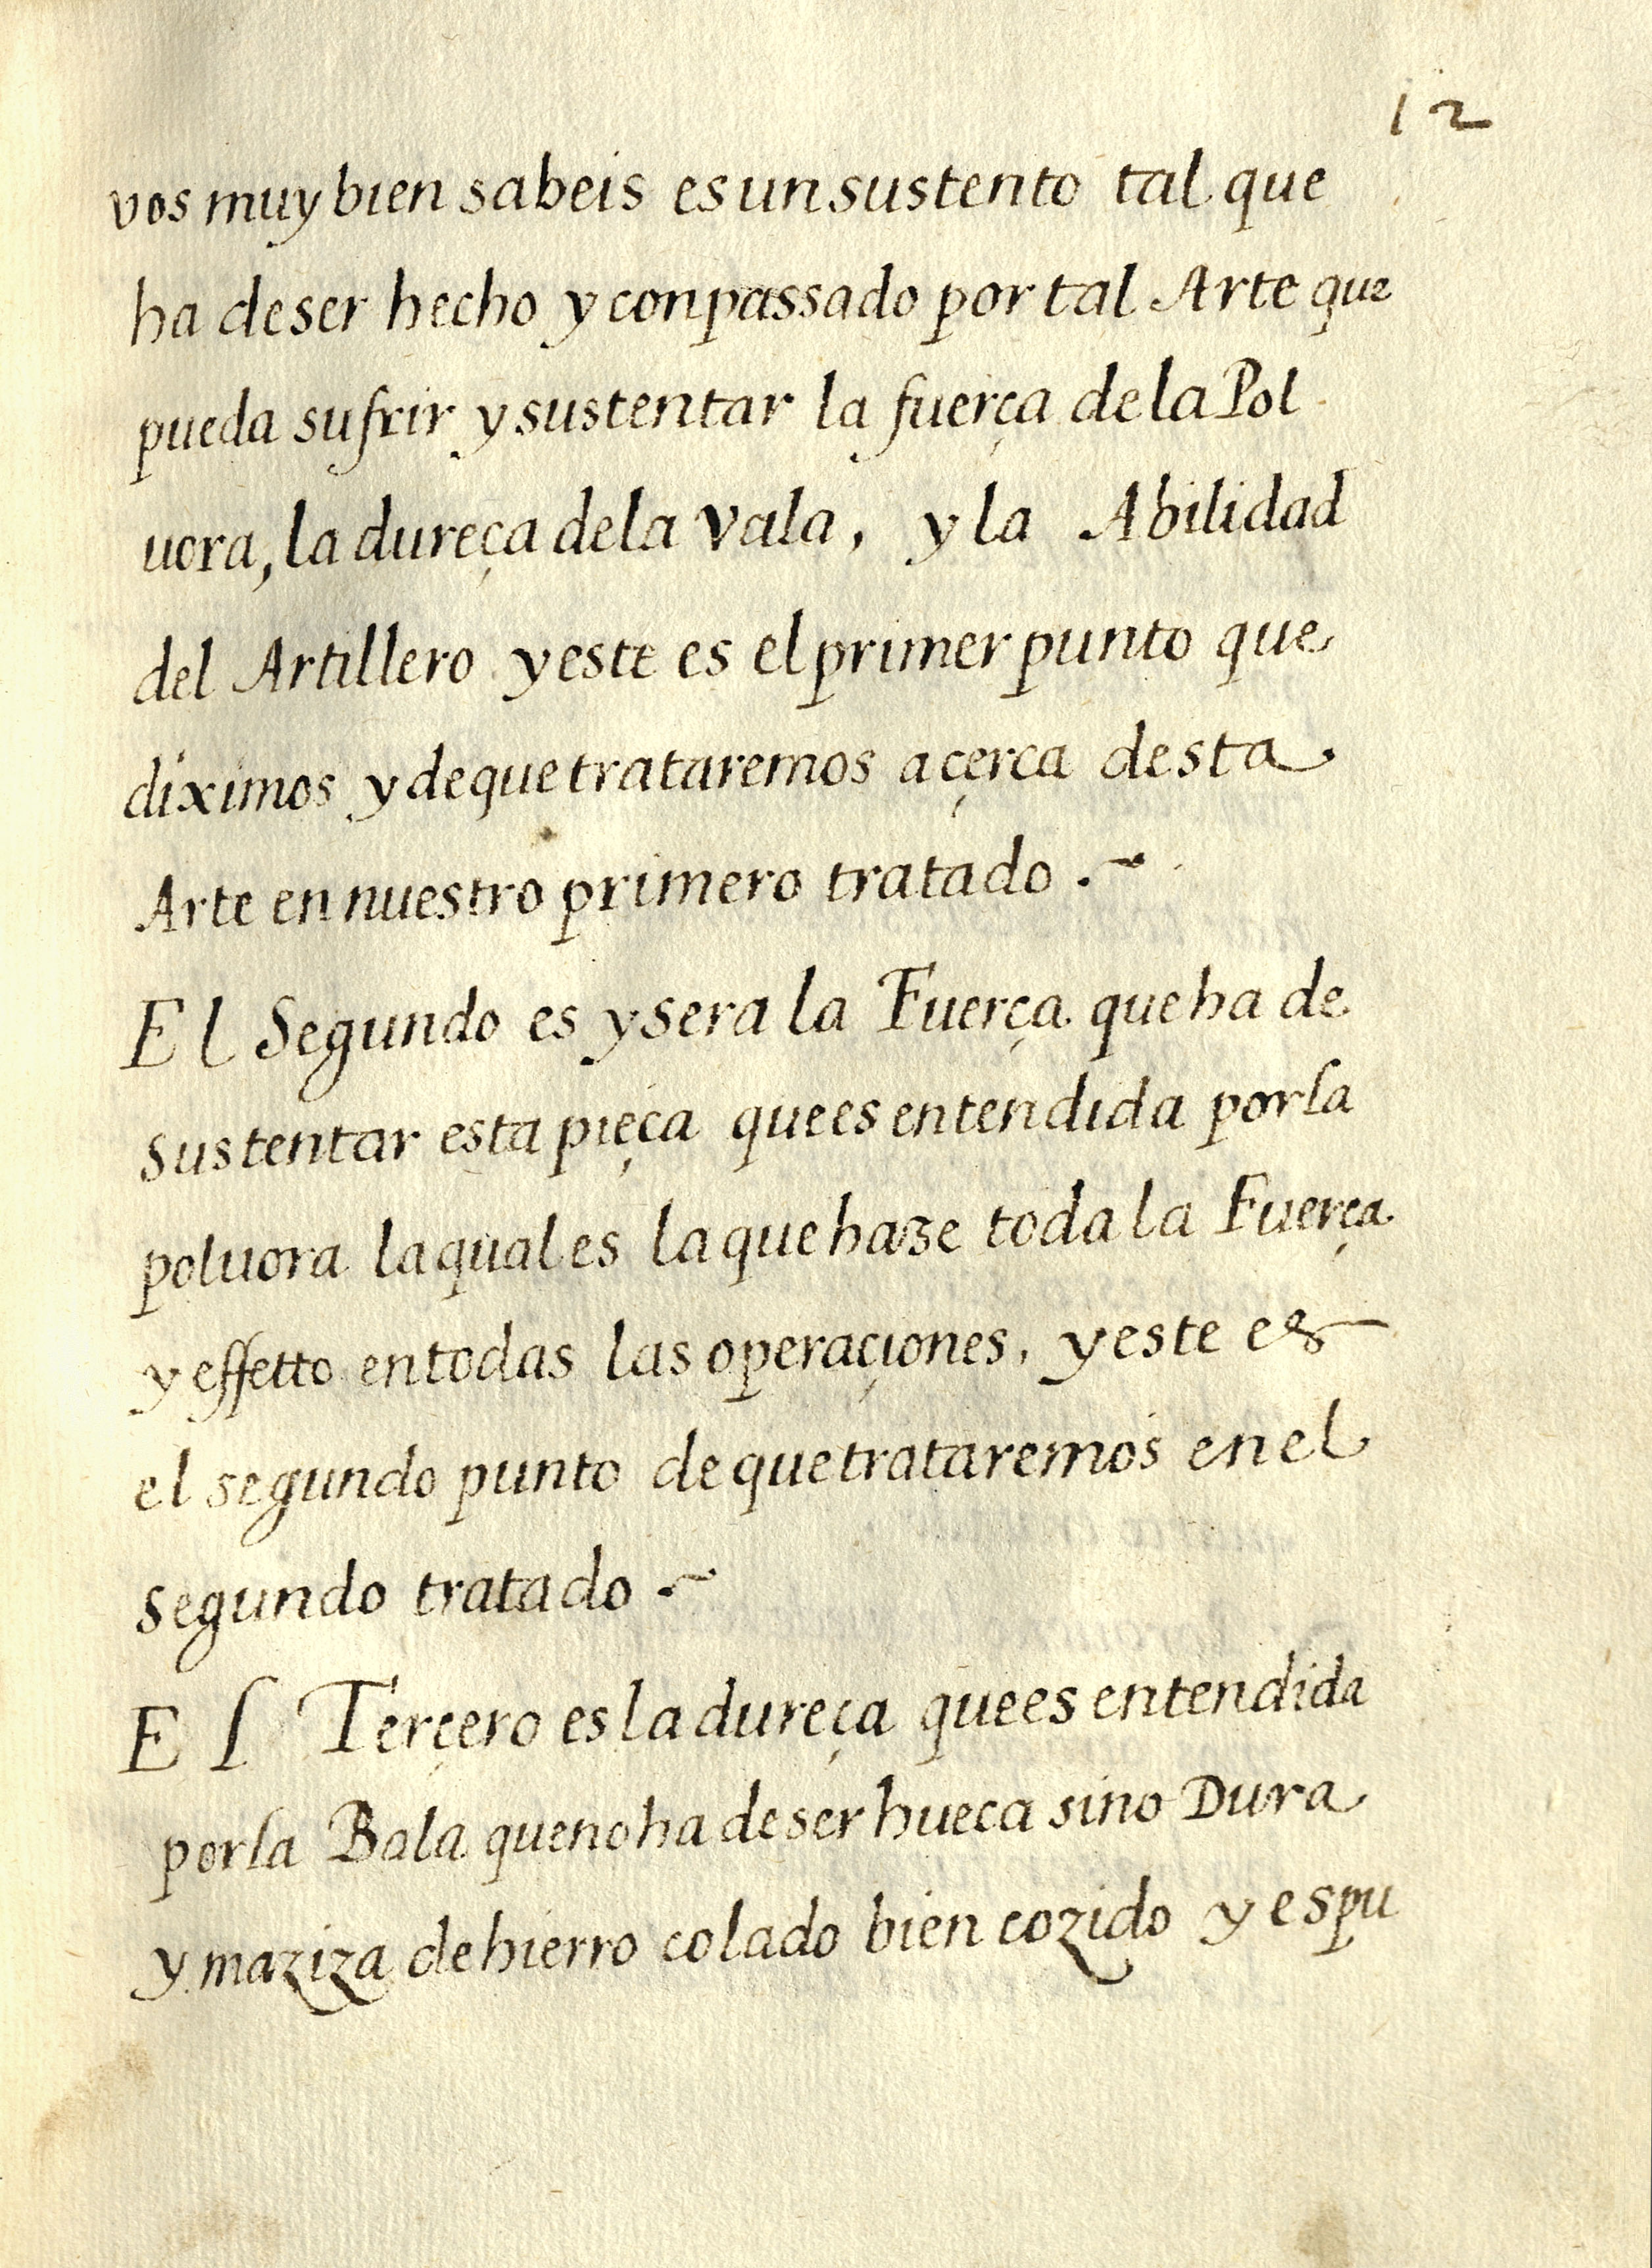 12
vos muy bien sabeis es un sustento tal que
ha de ser hecho y conpassado por tal Arte que
pueda sufrir y sustentar la fuerça de la Pol
uora, la dureça de la vala, y la Abilidad
del Artillero y este es el primer punto que
diximos y de que trataremos açerca desta
Arte en nuestro primero tratado .~
El Segundo es y sera la Fuerça que ha de
sustentar esta pieça que es entendida por la
poluora la qual es la que haze toda la Fuerça
y effetto en todas las operaçiones, y este es
el segundo punto de que trataremos en el
segundo tratado .~
El Terçero es la dureça que es entendida
por la Bala que no ha de ser hueca sino Dura
y maziza de hierro colado bien cozido y espu